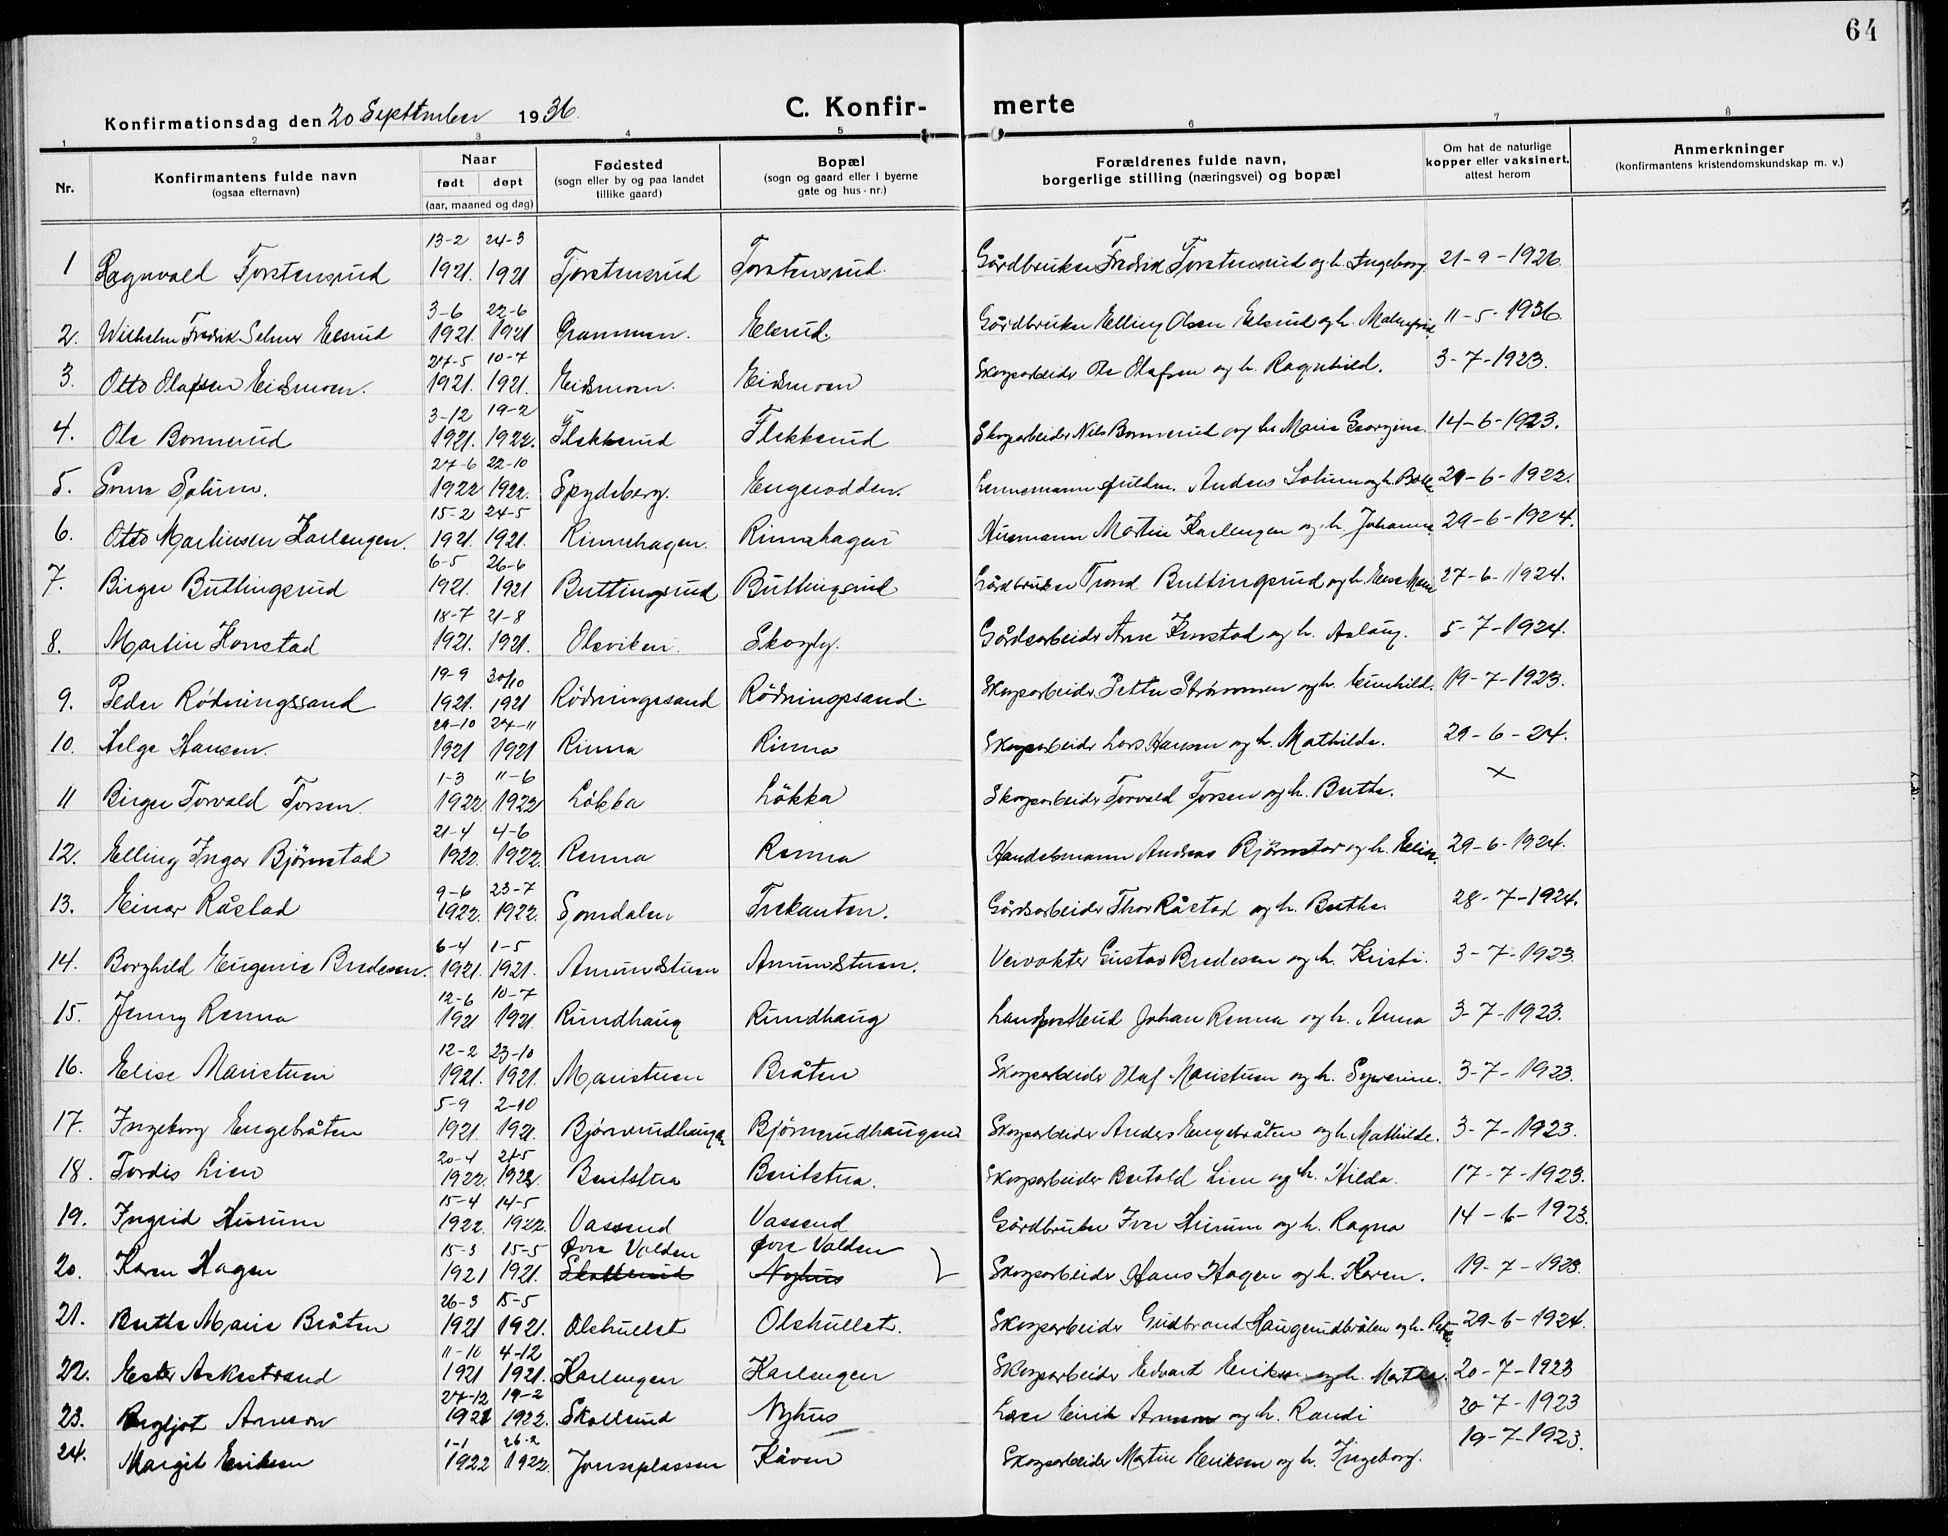 64
Konfirmationsdag den 20 September 1936. C. Konfir- merte
1 2 3 4 5 6 7 8
Nr. Konfirmantens fulde navn (ogsaa efternavn) Naar født døpt (aar, maaned og dag) Fødested (sogn eller by og paa landet tillike gaard) Bopæl (sogn og gaard eller i byerne gate og hus-nr.) Forældrenes fulde navn, borgerlige stilling (næringsvei) og bopæl Om hat de naturlige kopper eller vaksinert, attest herom Anmerkninger (konfirmantens kristendomskundskap m. v.)
13-2 24-3
1 Ragnvald Torstensrud 1921. 1921 Torstensrud Torstensrud. Gårdbruker Fredrik Torstensrud og h. Ingeborg 21-9-1926.
3-6 22-6
2. Wilhelm Fredrik Selmer Elsrud 1921. 1921 Grammen. Elsrud. Gårdbruker Elling Olsen Elsrud og h. Malmfrid 11-5-1936.
27-5 10-7
3. Otto Olafsen Eidsmoen. 1921. 1921. Eidsmoen. Eidsmoen Skogsarbeider Ole Olafsen og h. Ragnhild. 3-7-1923.
3-12 19-2
4. Ole Bonnerud 1921. 1922. Flekkerud Flekkerud Skogsarbeider Nils Bonnerud og h. Marie Georgine. 14-6-1923.
27-6 22-10
5. Solum. 1922 1922. Spydeberg. Engerodden. Lennsmannsfuldm. Anders Solum og h. 29-6-1922.
15-2 24-5
6. Otto Martinsen Karlengen. 1921. 1921. Rinnehagen. Rinnehagen Husmann Martin Karlengen og h. Johanne. 29-6-1924.
6-5 26-6
7. Birger Buttingsrud 1921. 1921 Buttingsrud Buttingsrud Gårdbruker Trond Buttingsrud og h. Else Marie 27-6-1924.
18-7 21-8
8. Martin Konstad 1921. 1921. Olsviken. Skogly. Gårdsarbeider Arne Konstad og h. Aslaug. 5-7-1924.
19-9 30/10
9. Peder Rødningssand 1921. 1921 Rødningssand Rødningssand. Skogsarbeider Petter Strømmen og h. Gunhild. 19-7-1923.
29-10 24-11
10. Helge Hansen. 1921 1921 Rinna Rinna Skogsarbeider Lars Hansen og h. Mathilde. 29-6-24.
1-3 11-6
11 Birger Torvald Torsen. 1922 1922 Løkka Løkka Skogsarbeider Torvald Torsen og h. Berthe. x
21-4 4-6
12. Elling Ingar Bjørnstad 1922. 1922. Renna Renna Handelsmann Andreas Bjørnstad og h. Elise. 29-6-1924.
9-6 23-7
13. Einar Råstad 1922. 1922. Somdalen Trekanten. Gårdsarbeider Thor Råstad og h. Berthe. 28-7-1924.
6-4 1-5
14. Borghild Eugenie Bredesen. 1921. 1921. Amundstuen Amundstuen. Veivokter Gustav Bredesen og h. Kristi. 3-7-1923.
12-6 10-7
15. Jenny Renna 1921 1921. Rundhaug Rundhaug Landpostbud Johan Renna og h. Anna 3-7-1923.
12-2 23-10
16. Elise Maristuen 1921. 1921. Maristuen Bråten Skogsarbeider Olaf Maristuen og h. Syverine. 3-7-1923.
5-9 2-10
17. Ingeborg Engebråten 1921. 1921. Bjørnerudhaugen Bjørnerudhaugen Skogsarbeider Anders Engebråten og h. Mathilde. 3-7-1923.
20-4 21-5
18. Tordis Lien 1922. 1922. Beritstua Beritstua. Skogsarbeider Bertold Lien og h. Hilda. 17-7-1923.
15-4 14-5
19. Ingrid Hurum 1922. 1922. Vassend Vassend Gårdbruker Iver Hurum og h. Ragna 14-6-1923.
15-3 15-5 Øvre Valden Øvre Valden
20. Karen Hagen 1921 1921. Skollerud Nyhus Skogsarbeider Hans Hagen og h. Karen. 19-7-1923.
26-3 15-5
21. Berthe Marie Bråten 1921 1921. Olshullet Olshullet. Skogsarbeider Gudbrand Haugerudbråten og h. 29-6-1924.
11-10 4-12
22. Ester Askestrand 1921 1921. Karlengen Karlengen Skogsarbeider Edvart Eriksen og h. Marthe. 20-7-1923
27-12 19-2
23. Bergljot Arneson 1921 1922. Skollerud Nyhus Lærer Eirik Arneson og h. Randi 20-7-1923
1-1 26-2
24. Margit Eriksen 1922 1922. Jonseplassen Kåven Skogsarbeider Martin Eriksen og h. Ingeborg. 19-7-1923.